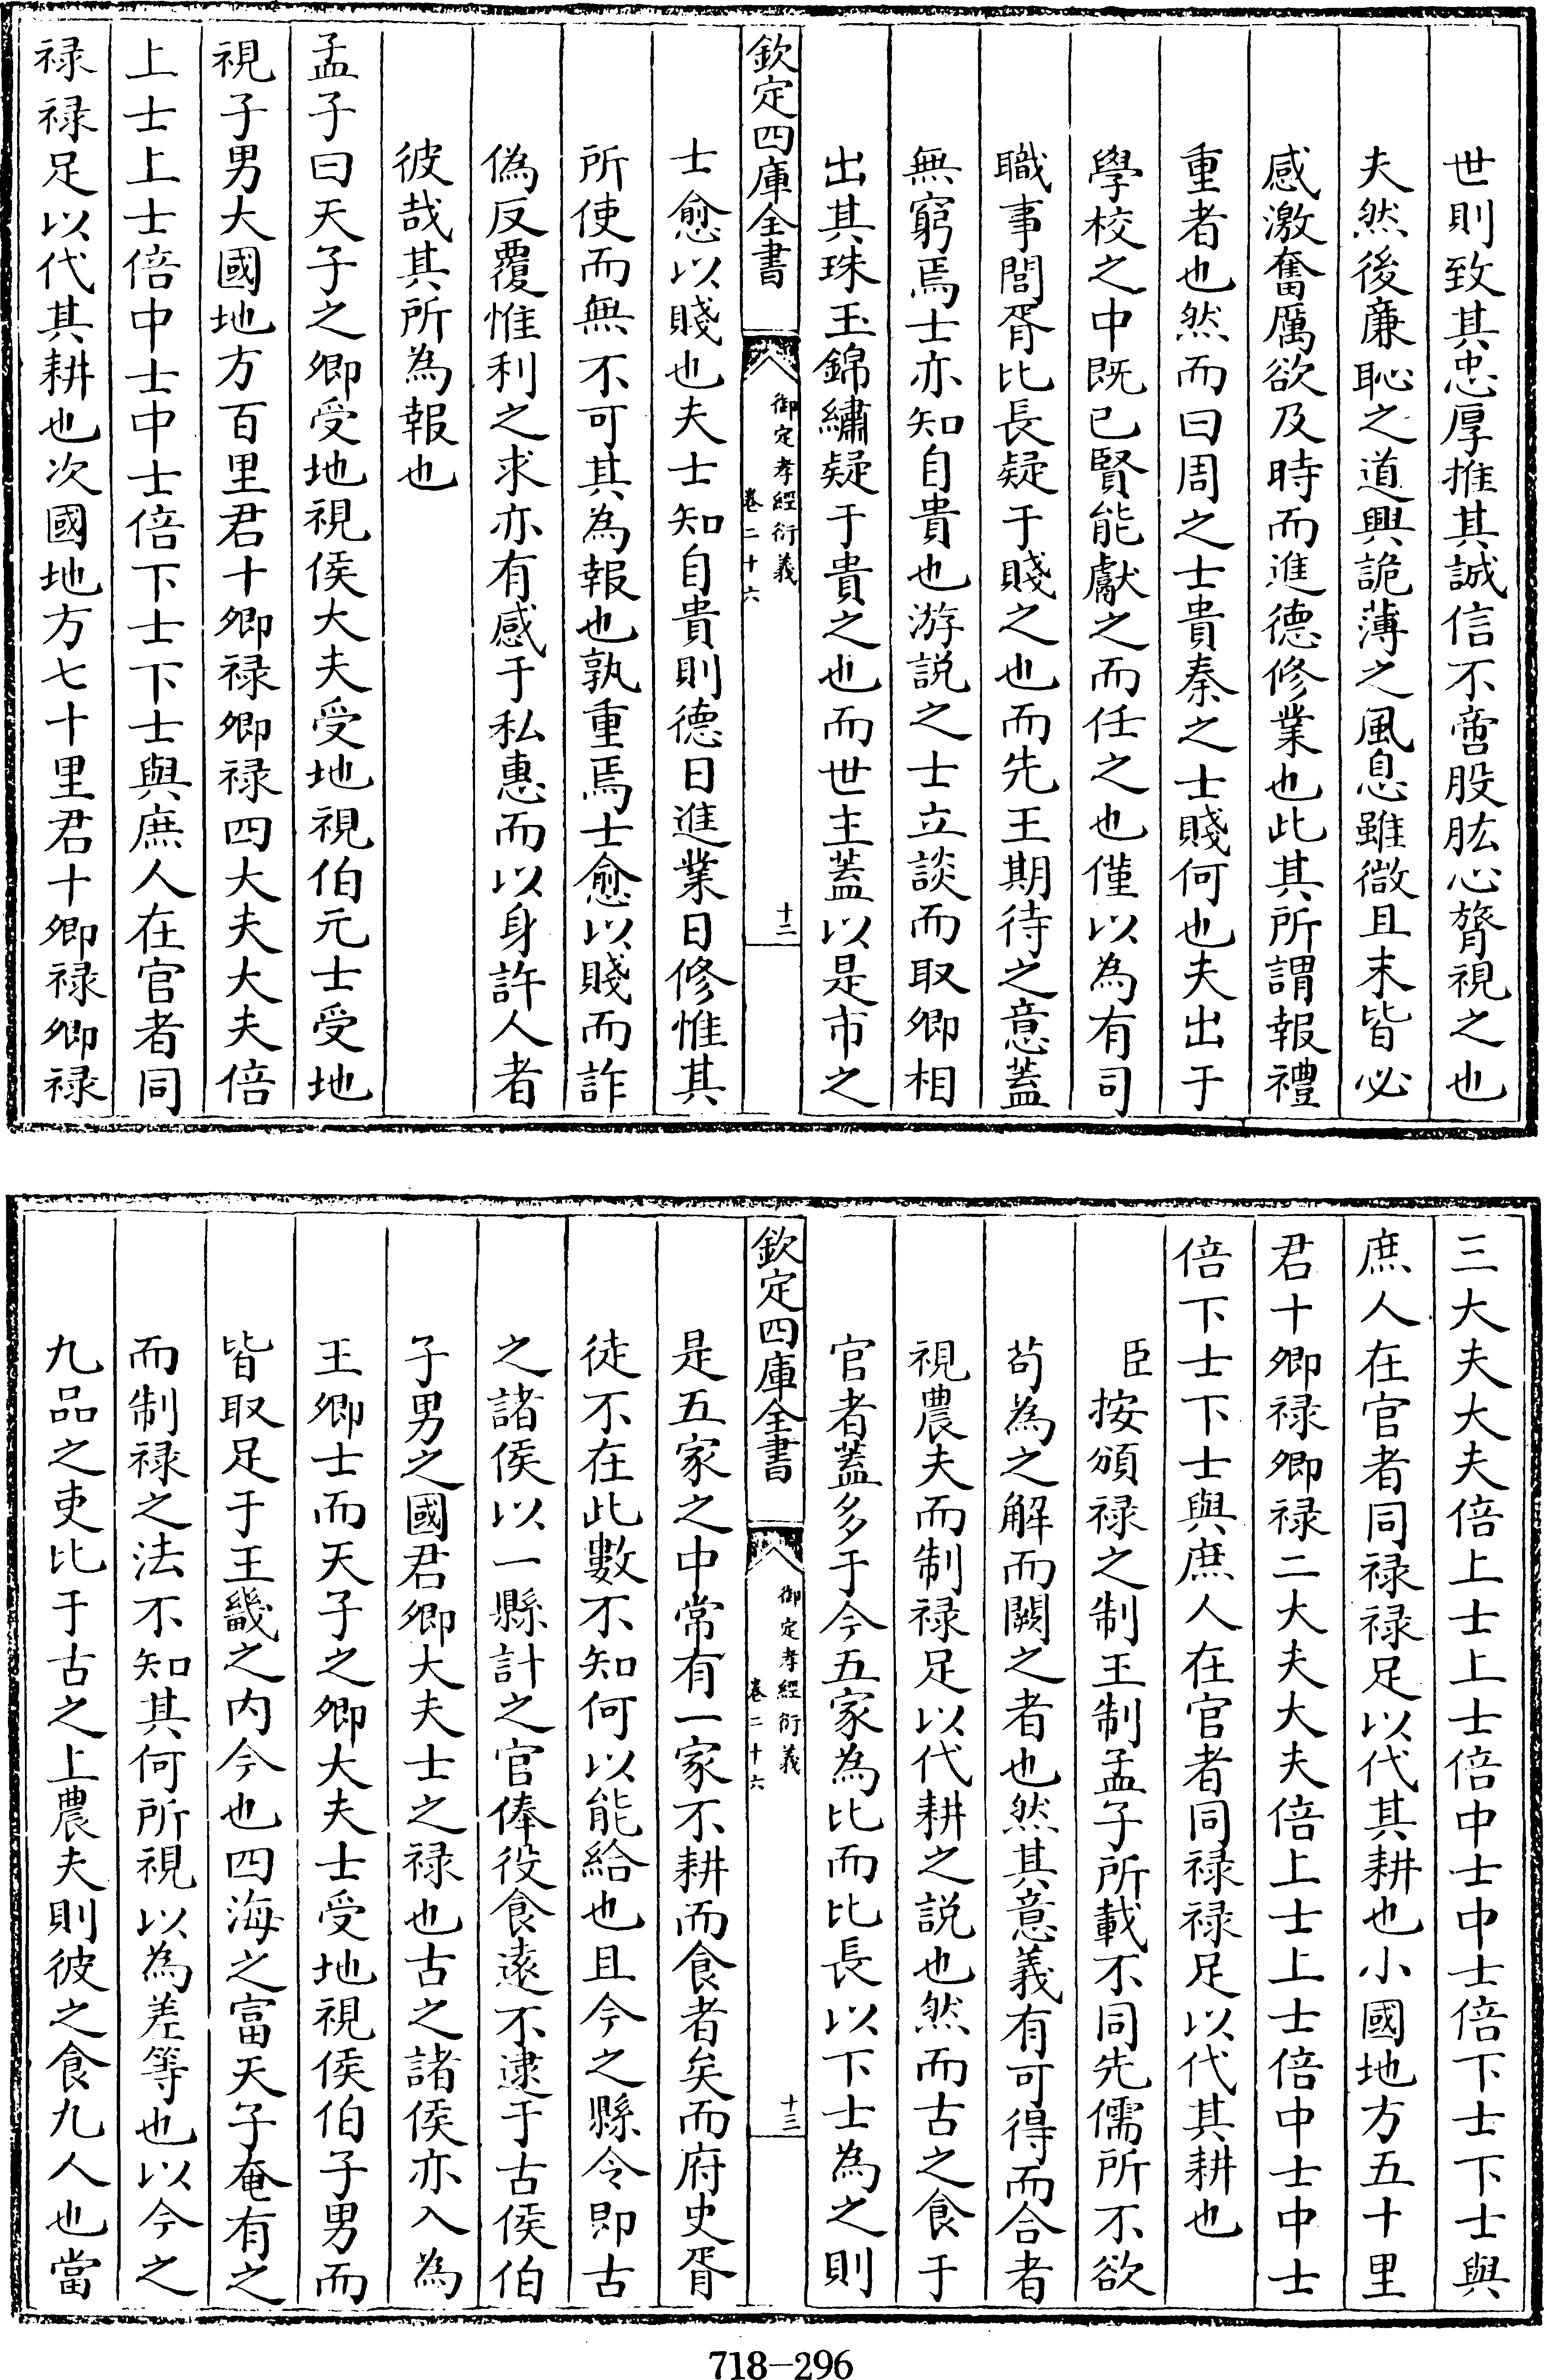 世則致其忠厚推其誠信不啻股肱心膂視之也
夫然後廉恥之道興詭薄之風息雖微且末皆必
感激奮厲欲及時而進德修業也此其所謂報禮
重者也然而曰周之士貴秦之士賤何也夫出于
學校之中既已賢能獻之而任之也僅以為有司
職事閭胥比長疑于賤之也而先王期待之意蓋
無窮焉士亦知自貴也游説之士立談而取卿相
出其珠玉錦繡疑于貴之也而世主蓋以是市之
欽定四庫全書
御定孝經衍義
卷二十六
十二
士愈以賤也夫士知自貴則德日進業日修惟其
所使而無不可其為報也孰重焉士愈以賤而詐
偽反覆惟利之求亦有感于私惠而以身許人者
彼哉其所為報也
孟子曰天子之卿受地視侯大夫受地視伯元士受地
視子男大國地方百里君十卿禄卿禄四大夫大夫倍
上士上士倍中士中士倍下士下士與庶人在官者同
禄禄足以代其耕也次國地方七十里君十卿禄卿禄
三大夫大夫倍上士上士倍中士中士倍下士下士與
庶人在官者同禄禄足以代其耕也小國地方五十里
君十卿禄卿禄二大夫大夫倍上士上士倍中士中士
倍下士下士與庶人在官者同禄禄足以代其耕也
臣按頒禄之制王制孟子所載不同先儒所不欲
苟為之解而闕之者也然其意義有可得而合者
視農夫而制禄足以代耕之説也然而古之食于
官者蓋多于今五家為比而比長以下士為之則
欽定四庫全書
御定孝經衍義
卷二十六
十三
是五家之中常有一家不耕而食者矣而府史胥
徒不在此數不知何以能給也且今之縣令即古
之諸侯以一縣計之官俸役食遠不逮于古侯伯
子男之國君卿大夫士之禄也古之諸侯亦入為
王卿士而天子之卿大夫士受地視侯伯子男而
皆取足于王畿之内今也四海之富天子奄有之
而制禄之法不知其何所視以為差等也以今之
九品之吏比于古之上農夫則彼之食九人也當
718-296